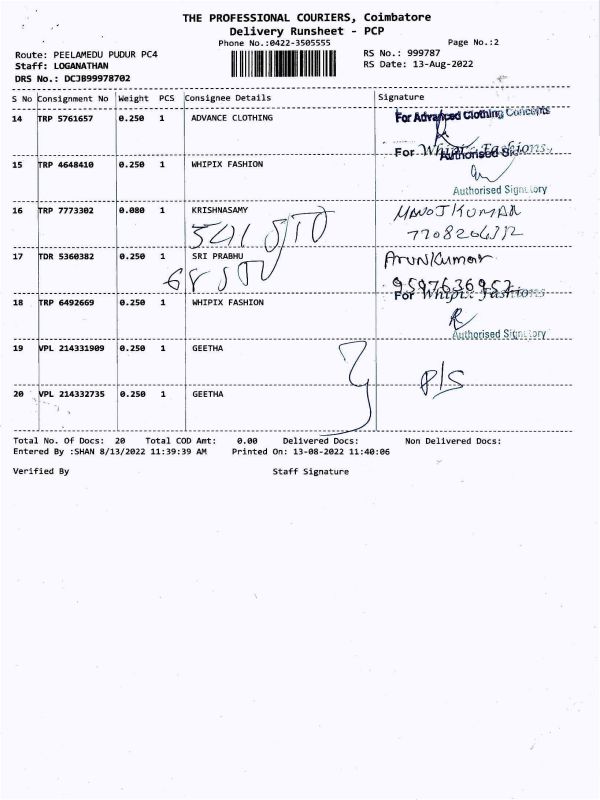 THE PROFESSIONAL COURIERS, Coimbatore
Delivery Runsheet - PCP
Phone No.:0422-3505555
Page No.:2
Route: PEELAMEDU PUDUR PC4
RS No.: 999787
Staff: LOGANATHAN
RS Date: 13-Aug-2022
DRS No.: DCJB99978702
S No Consignment No Weight PCS Consignee Details Signature
14 TRP 5761657 0.250 1 ADVANCE CLOTHING For Advanced Clothing Concepts
For Whipix Fashions
Authorised
15 TRP 4648410 0.250 1 WHIPIX FASHION
Authorised Signatory
16 TRP 7773302 0.080 1 KRISHNASAMY MANOJ KUMAR
17 TDR 5360382 0.250 1 SRI PRABHU ArunKumar
9597636957
For Whipix Fashions
18 TRP 6492669 0.250 1 WHIPIX FASHION
Authorised Signatory
19 VPL 214331909 0.250 1 GEETHA
P/S
20 VPL 214332735 0.250 1 GEETHA
Total No. Of Docs: 20 Total COD Amt: 0.00 Delivered Docs: Non Delivered Docs:
Entered By :SHAN 8/13/2022 11:39:39 AM Printed On: 13-08-2022 11:40:06
Verified By Staff Signature